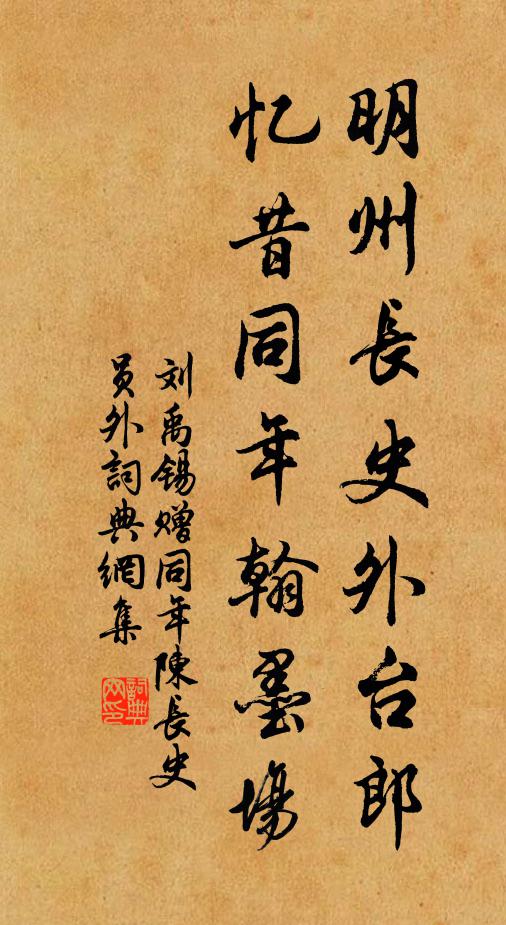 明州長史外台郎
忆昔同年翰墨場
刘禹锡赠同年陳長史
員外詞典網集
詞典网印